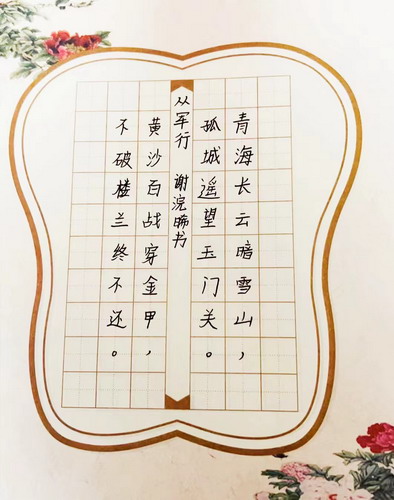 青海长云暗雪山，
孤城遥望玉门关。
从军行 谢浣晞书
黄沙百战穿金甲，
不破楼兰终不还。